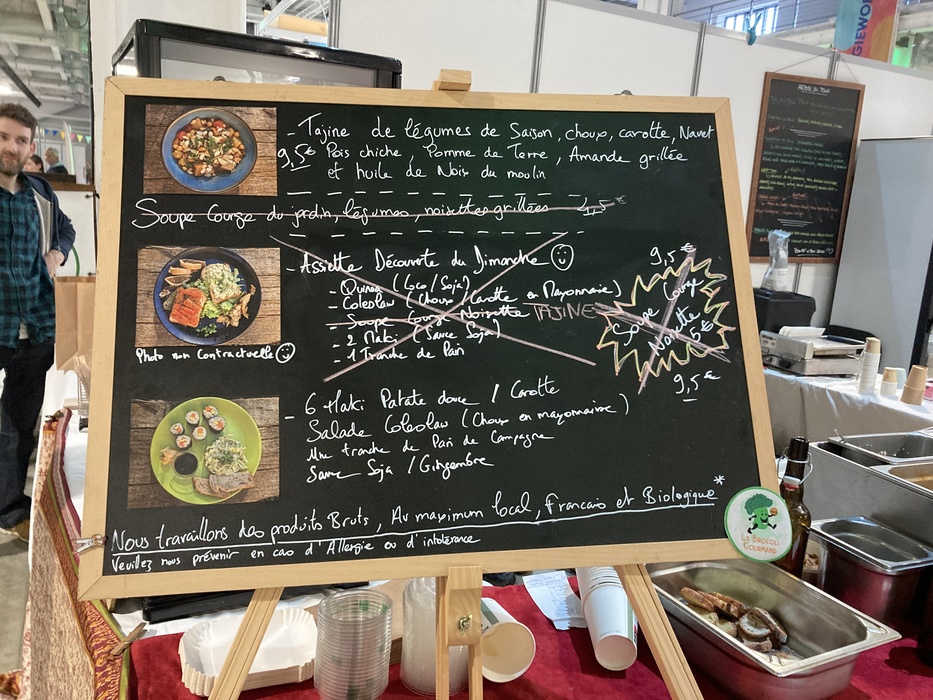 - Tajine de légumes de Saison, choux, carotte, Navet
9,5€ Pois chiche, Pomme de Terre, Amande grillée
et huile de Noix du moulin
Soupe Courge du jardin, légumes, noisettes grillées 4,5€
- Assiette Découverte du Dimanche
9,5€
- Quinoa (Coco/Soja)
- Coleslaw (Choux/Carotte en Mayonnaire)
- Soupe Courge Noisette TAJINE
- 2 Maki (Sauce Soja)
- 1 Tranche de Pain
Soupe Courge
Noisette
5€
Photo non Contractuelle
9,5€
- 6 Maki Patate douce / Carotte
Salade Coleslaw (Choux en mayonnaire)
Une tranche de Pain de Campagne
Sauce Soja / Gingembre
Nous travaillons des produits Bruts, Au maximum local, Francais et Biologique*
Veuillez nous prévenir en cas d'Allergie ou d'intolérance
LE BROCOLI
GOURMAND